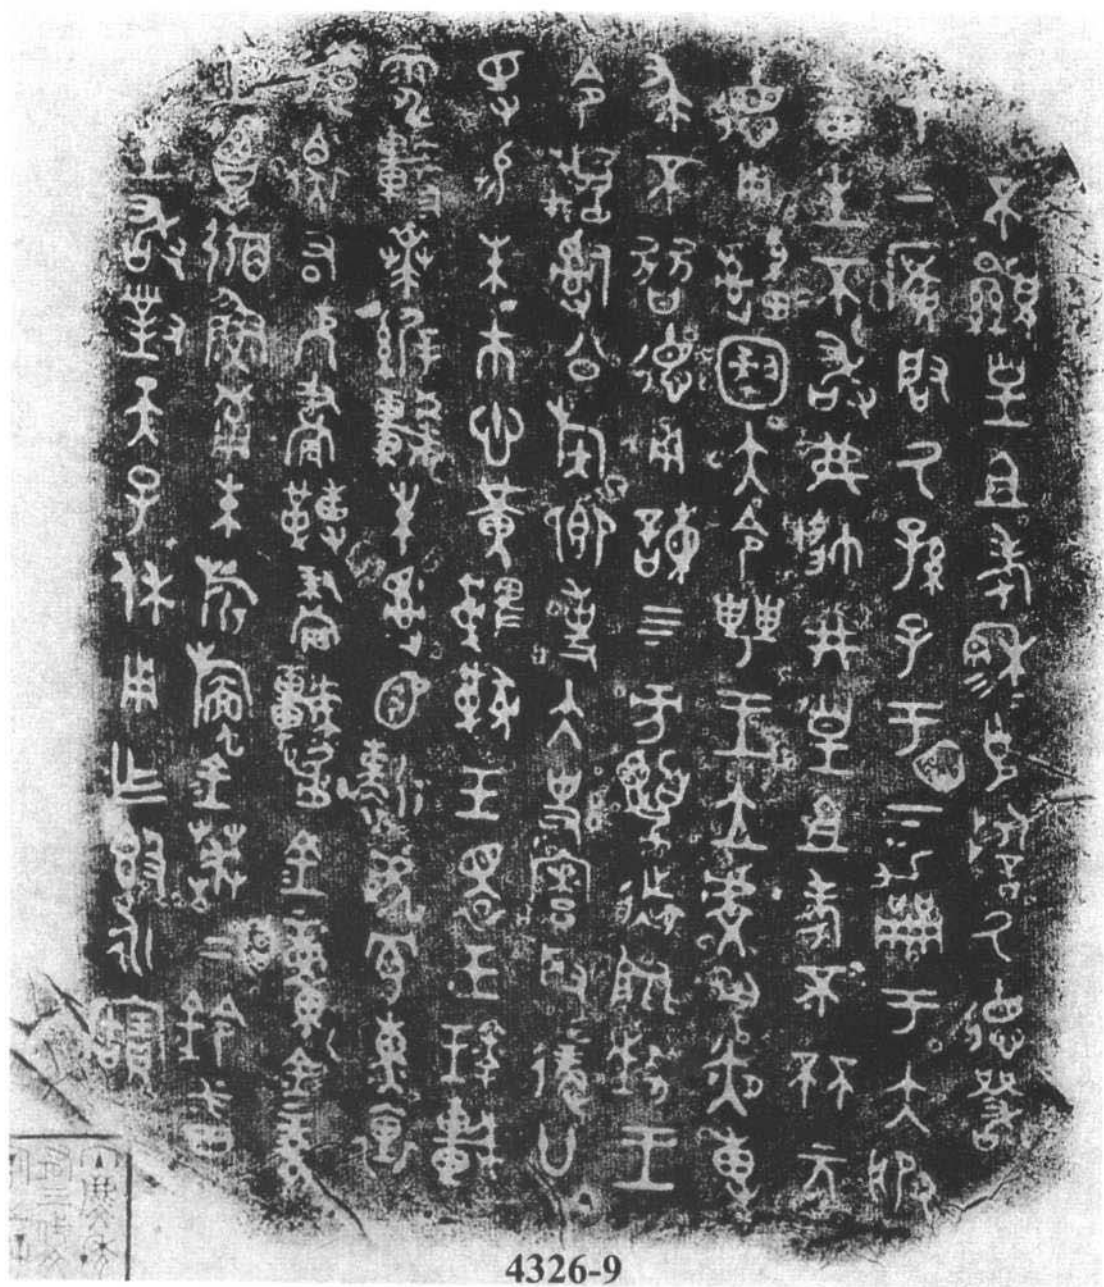 不顯皇且考穆=克誓氒德嚴
才上廣啟氒孫子于下擢于大服
番生不敢弗帥井皇且考不杯元
德用䌛𡇬大令甹王立虔夙夜尃
求不朁德用諫四方柔遠能𤞷王
令𤔲公族卿事大史寮取徵廿
寽易朱市悤黃鞞𩋘玉睘玉琮車
電軫𠦪緟較朱𤿳𠁁靳虎冟熏裏
錯衡右厄畫𩌏畫𨌯金童金豙
金簟弼魚葡朱旂旜金芫二鈴番
生敢對天子休用乍簋永寶
4326-9